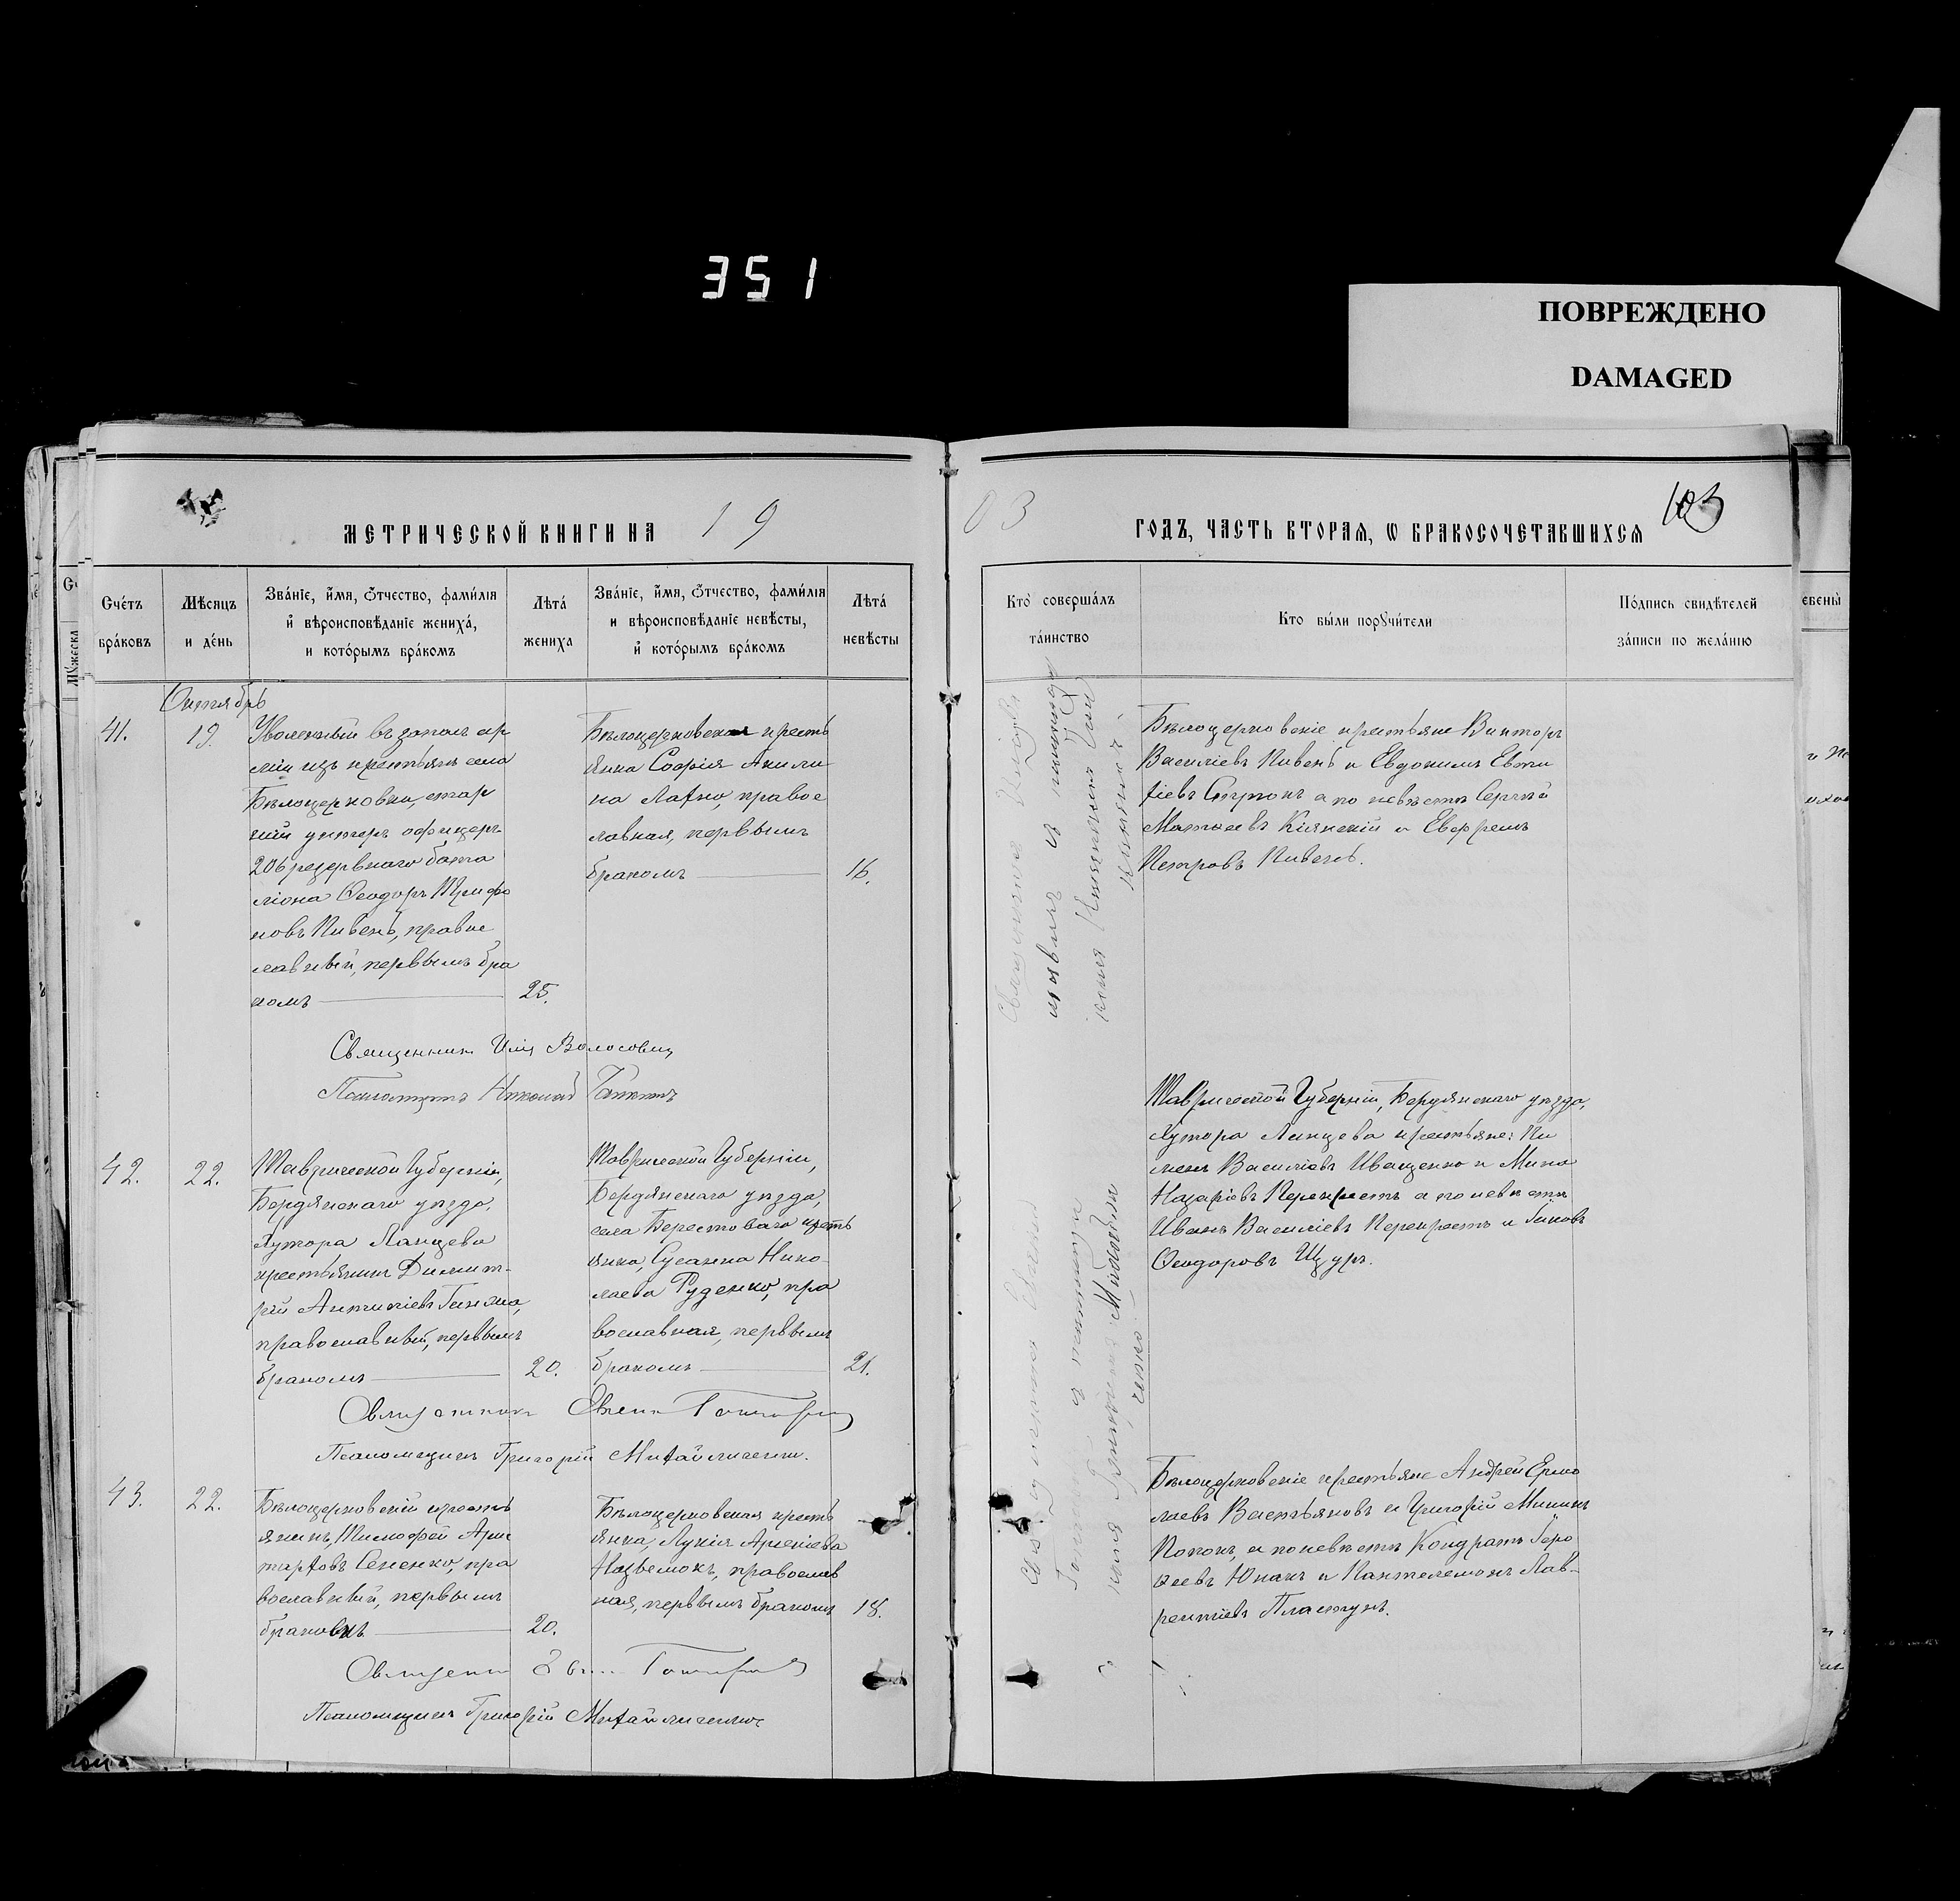 351
ПОВРЕЖДЕНО
DAMAGED
МЕТРИЧЕСКОЙ КНИГИ НА 19
03 ГОДЪ, ЧАСТЬ ВТОРАЯ, Ѡ БРАКОСОЧЕТАВШИХСЯ
103
Счéтъ бра́ковъ
Мѣсяцъ и де́нь
Зва́нїе, и҆́мя, ѻ҆́тчество, фами́лїя
и҆ вѣроисповѣ́данїе жениха́,
и кото́рымъ бра́комъ
Лѣта́ жениха
Зва́нїе, и҆́мя, ѻ҆́тчество, фами́лїя
и вѣроисповѣ́данїе невѣ́сты,
и҆ кото́рымъ бра́комъ
Лѣта́ невѣ́сты
Кто̀ соверша́лъ та́инство
Кто бы́ли порꙋчи́тели
По́дпись свидѣ́телей
за́писи по жела́нію
Октябрь
41.
19.
Уволенный въ запасъ ар
міи изъ крестьянъ села
Бѣлоцерковки, стар
шій унтеръ офицеръ
206 резервнаго бата
ліона Ѳеодоръ Трифо
новъ Пивень, правос
лавный, первымъ бра
комъ
25.
Бѣлоцерковская кресть
янка Софія Акили
на Лахно, правос
лавная, первымъ
бракомъ
16.
Бѣлоцерковскіе крестьяне Викторъ
Василіевъ Пивень и Евдокимъ Евти
хіевъ а по невѣстѣ Сергѣй
Матѳеевъ Кіянскій и Ефремъ
Петровъ Пивень.
Священникъ Илія Волосовиц
Псаломщикъ Николай
42.
22.
Таврической Губерніи,
Бердянскаго уѣзда,
хутора Ланцева
крестьянинъ Димит-
рій Антиліевъ
православный, первымъ
бракомъ
20.
Таврической Губерніи,
Бердянскаго уѣзда,
села Берестоваго кресть
янка, Сусанна Нико
лаева Руденко, пра
вославная, первымъ
бракомъ
21.
Таврической Губерніи, Бердянскаго уѣзда,
хутора Ланцева крестьяне: Пи
менъ Василіевъ Иващенко и Мина
Назаріевъ Перекрестъ а по невѣстѣ
Иванъ Василіевъ Перекрестъ и Іаковъ
Ѳеодоровъ Щуръ.
Священникъ
Псаломщикъ Григорій Михайличенко.
43.
22.
Бѣлоцерковскій кресть
янинъ, Тимофей Арис
тарховъ Сененко, пра
вославный, первымъ
бракомъ
20.
Бѣлоцерковская кресть
янка, Лукія Арсеніева
православ
ная, первымъ бракомъ
18.
Бѣлоцерковскіе крестьяне Андрей Ермо
лаевъ Вастьяновъ и Григорій Мининъ
Попокъ, а по невѣстѣ Кондратъ Геро
ѳеевъ Юнакъ и Пантелемонъ Лав-
рентіевъ Пластунъ.
Священникъ
Псаломщикъ Григорій Михайличенко